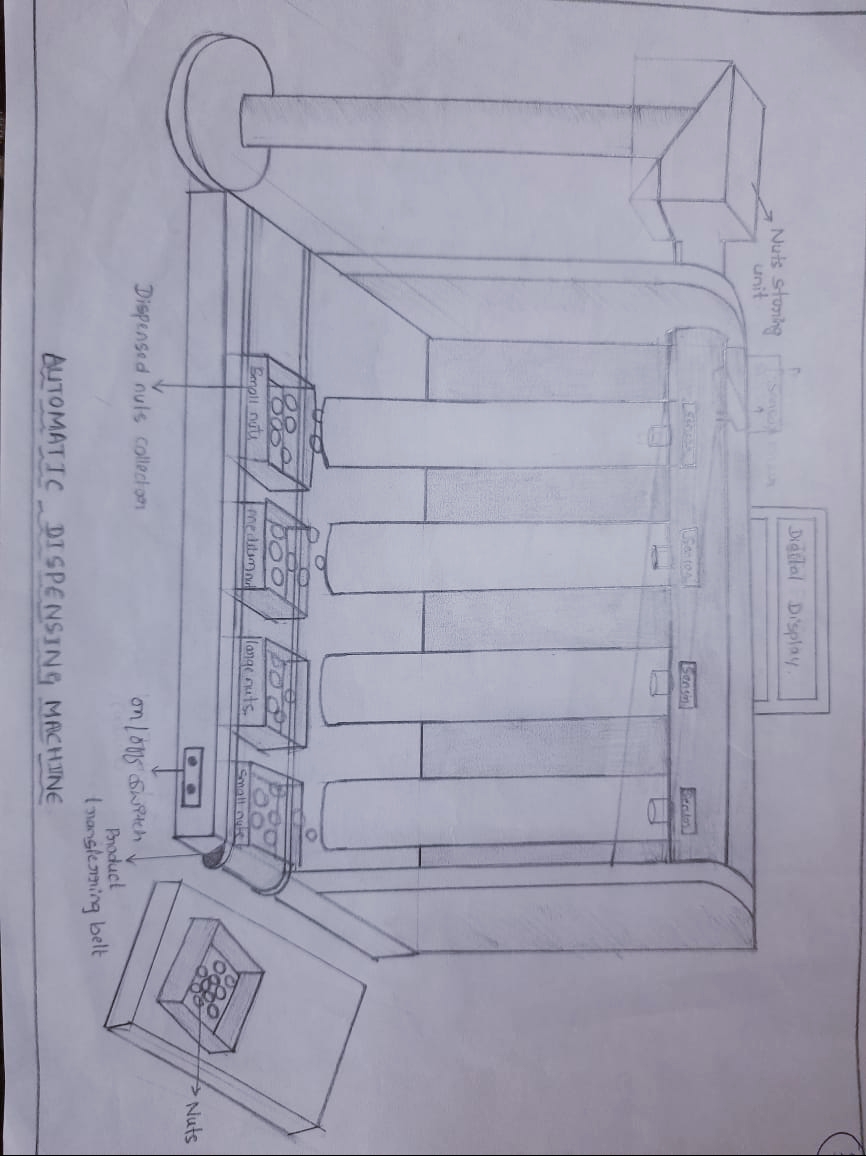 Nuts storing
unit
Digital Display.
Sensor
Sensor
Sensor
Sensor
Small nuts
medium nut
large nuts
small nuts
Dispensed nuts collector
on/off switch
Product
transferring belt
Nuts
AUTOMATIC DISPENSING MACHINE